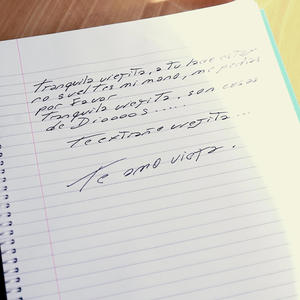 Tranquila viejita, a tu lado estoy
no sueltes mi mano, me pedias
por favor
Tranquila viejita, son cosas
de Diooos......
Te extraño viejita...
Te amo vieja.